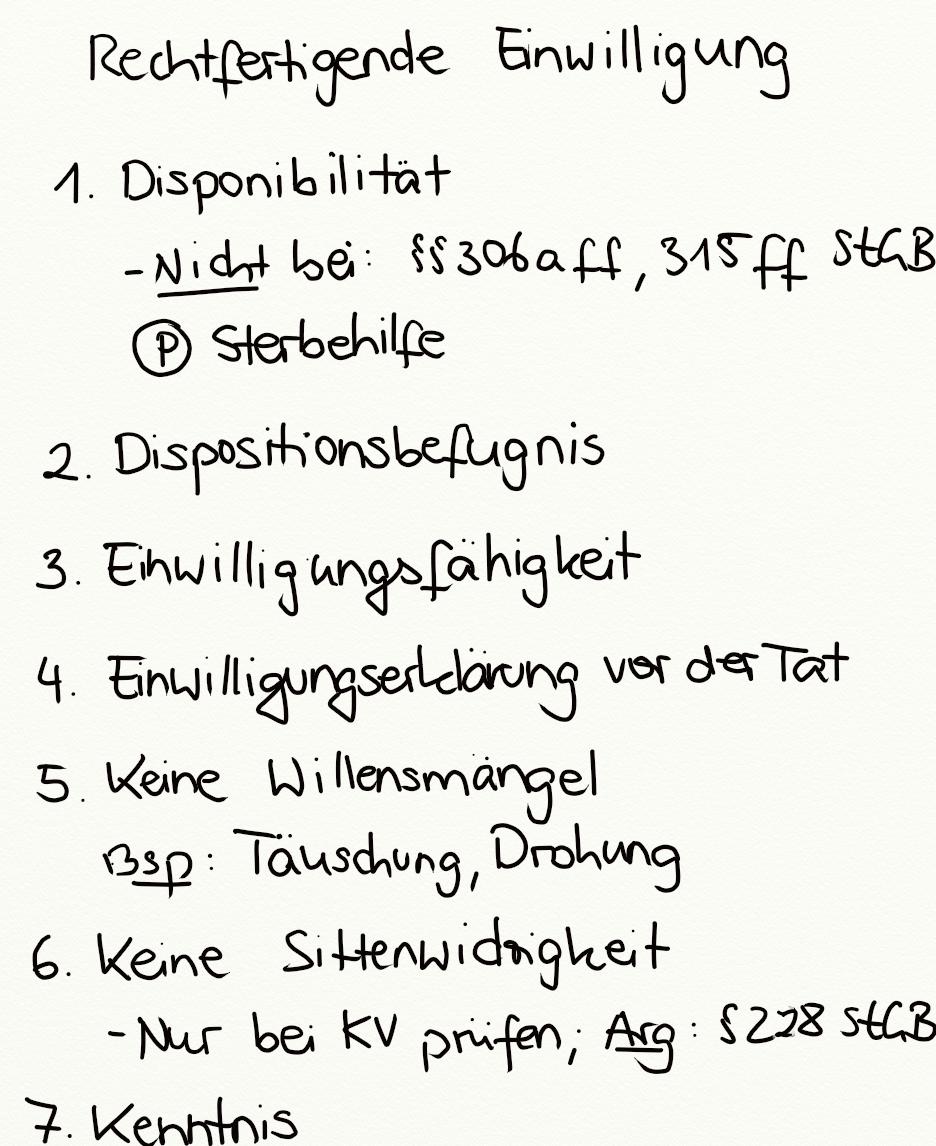 Rechtfertigende Einwilligung
1. Disponibilität
- Nicht bei: §§ 306a ff, 315 ff StGB
Ⓟ Sterbehilfe
2. Dispositionsbefugnis
3. Einwilligungsfähigkeit
4. Einwilligungserklärung vor der Tat
5. Keine Willensmängel
Bsp: Täuschung, Drohung
6. Keine Sittenwidrigkeit
- Nur bei KV prüfen; Arg: § 228 StGB
7. Kenntnis